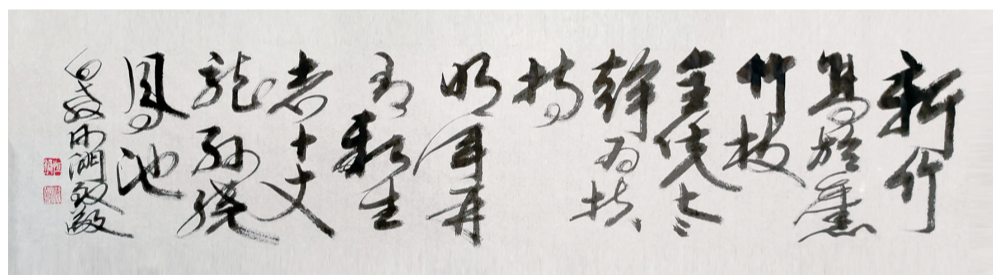 新竹
高於舊
竹枝
全凭老
幹为扶
持
明年再
有新生
者十丈
龍孫繞
鳳池